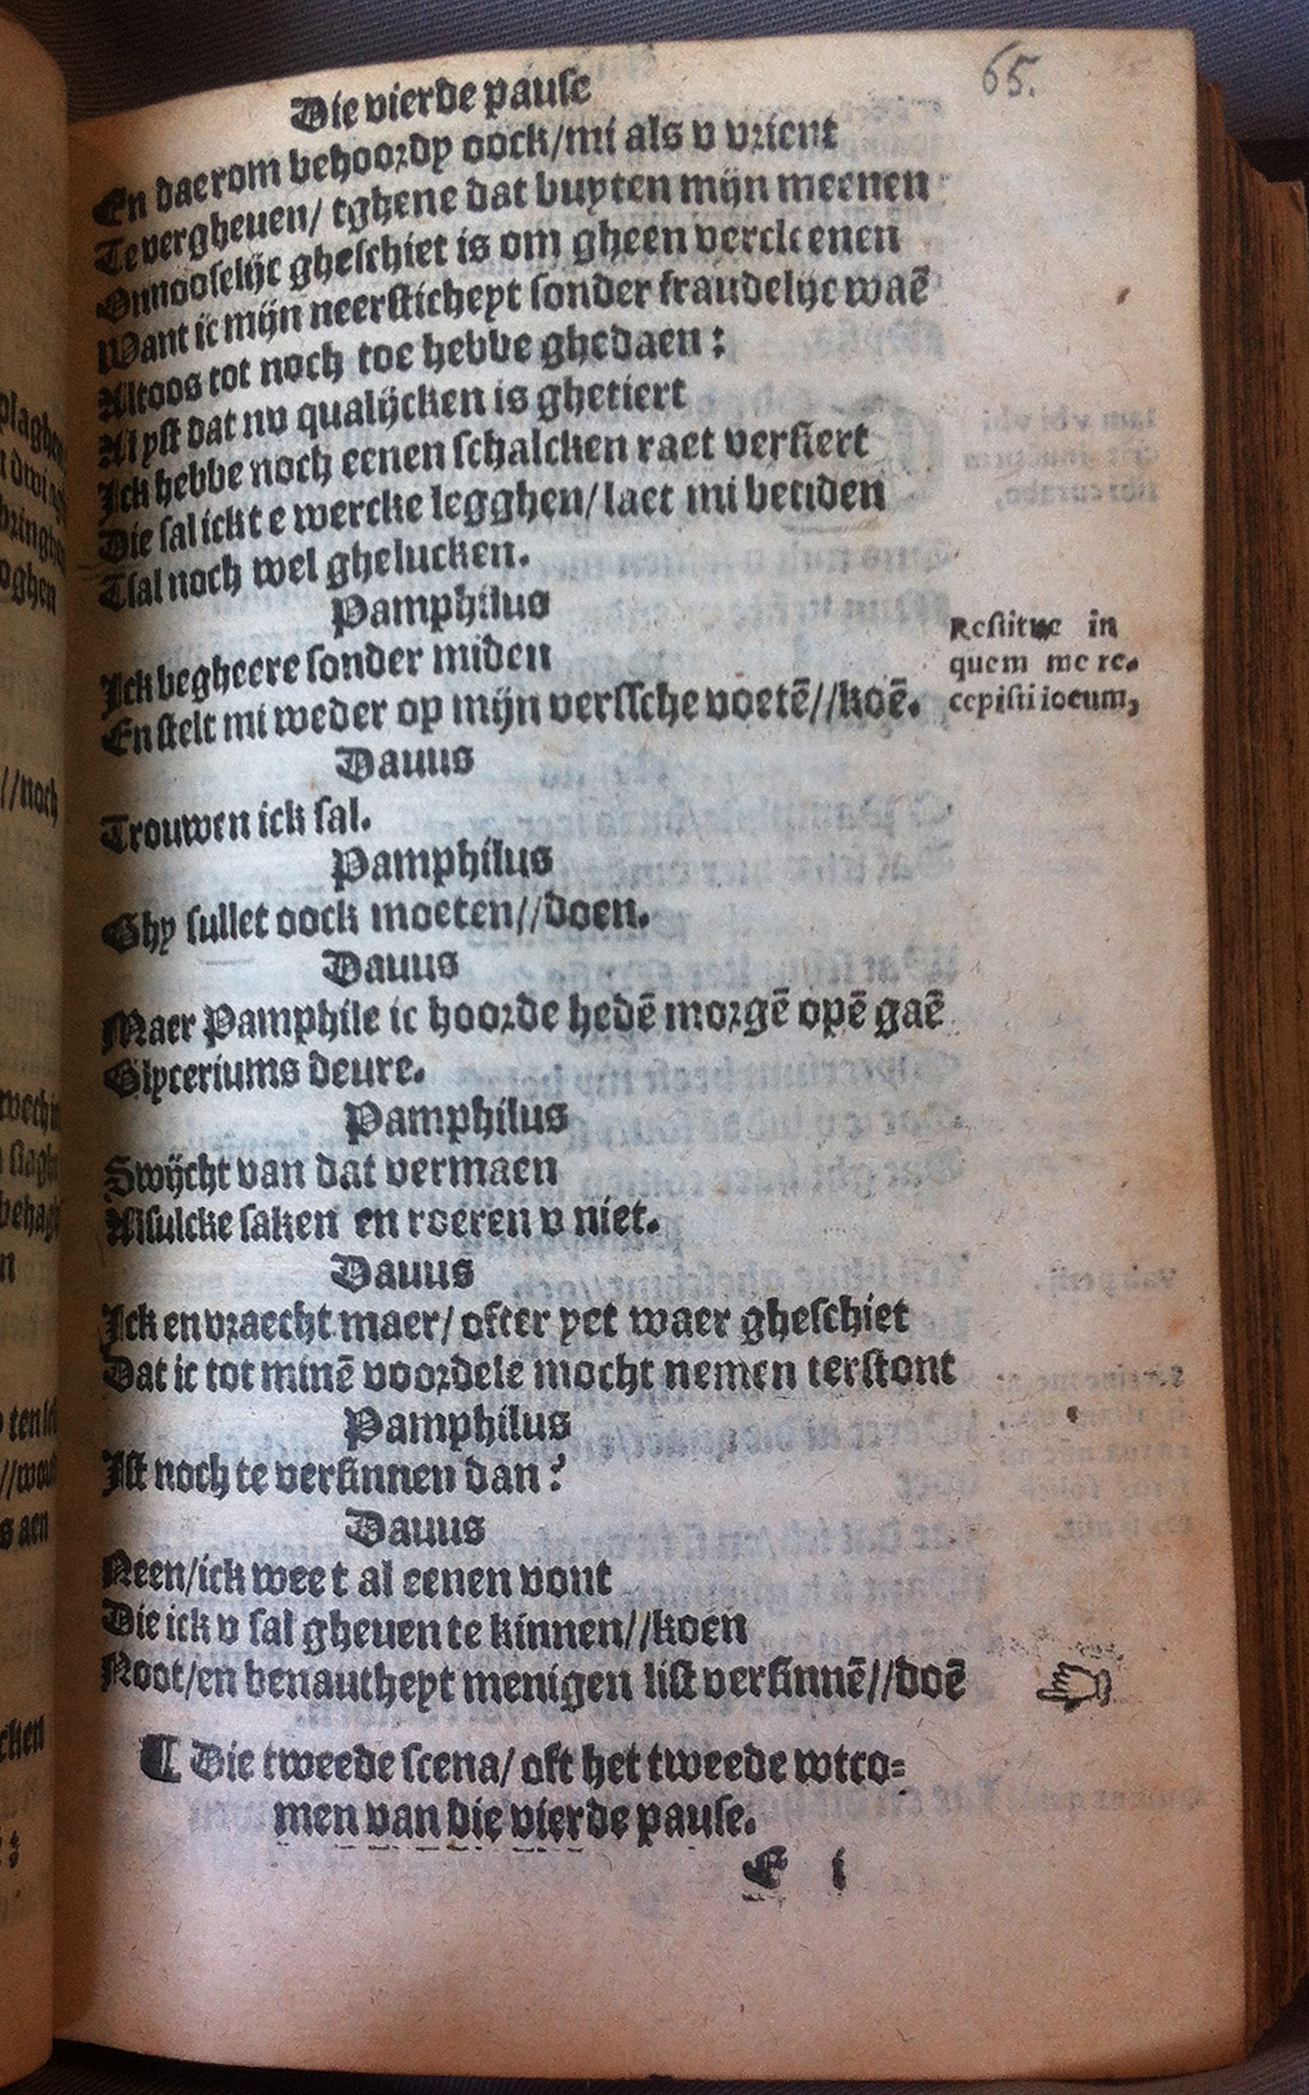 65.
Die vierde pause
En daerom behoordy oock/mi als v vrient
Te vergheuen/ tghene dat buyten mijn meenen
Onnooselijc gheschiet is om gheen vercleenen
Want ic mijn neersticheyt sonder fraudelijc waē
Altoos tot noch toe hebbe ghedaen:
Al yst dat nv qualijcken is ghetiert
Ick hebbe noch eenen schalcken raet versiert
Die sal ick te wercke legghen/laet mi betiden
Tsal noch wel ghelucken.
Pamphilus
Ick begheere sonder miden
En stelt mi weder op mijn verssche voetē//koē.
Restitue in
quem me re-
cepisti locum,
Dauus
Trouwen ick sal.
Pamphilus
Ghy sullet oock moeten//doen.
Dauus
Maer Pamphile ic hoorde hedē morgē opē gaē
Glyceriums deure.
Pamphilus
Swijcht van dat vermaen
Alsulcke saken en roeren v niet.
Dauus
Ick en vraecht maer/ ofter yet waer gheschiet
Dat ic tot minē voordele mocht nemen terstont
Pamphilus
Ist noch te versinnen dan?
Dauus
Neen/ick weet al eenen vont
Die ick v sal gheuen te kinnen//koen
Noot/en benautheyt menigen list versinnē//doē
¶ Die tweede scena/ oft het tweede wtco=
men van die vierde pause.